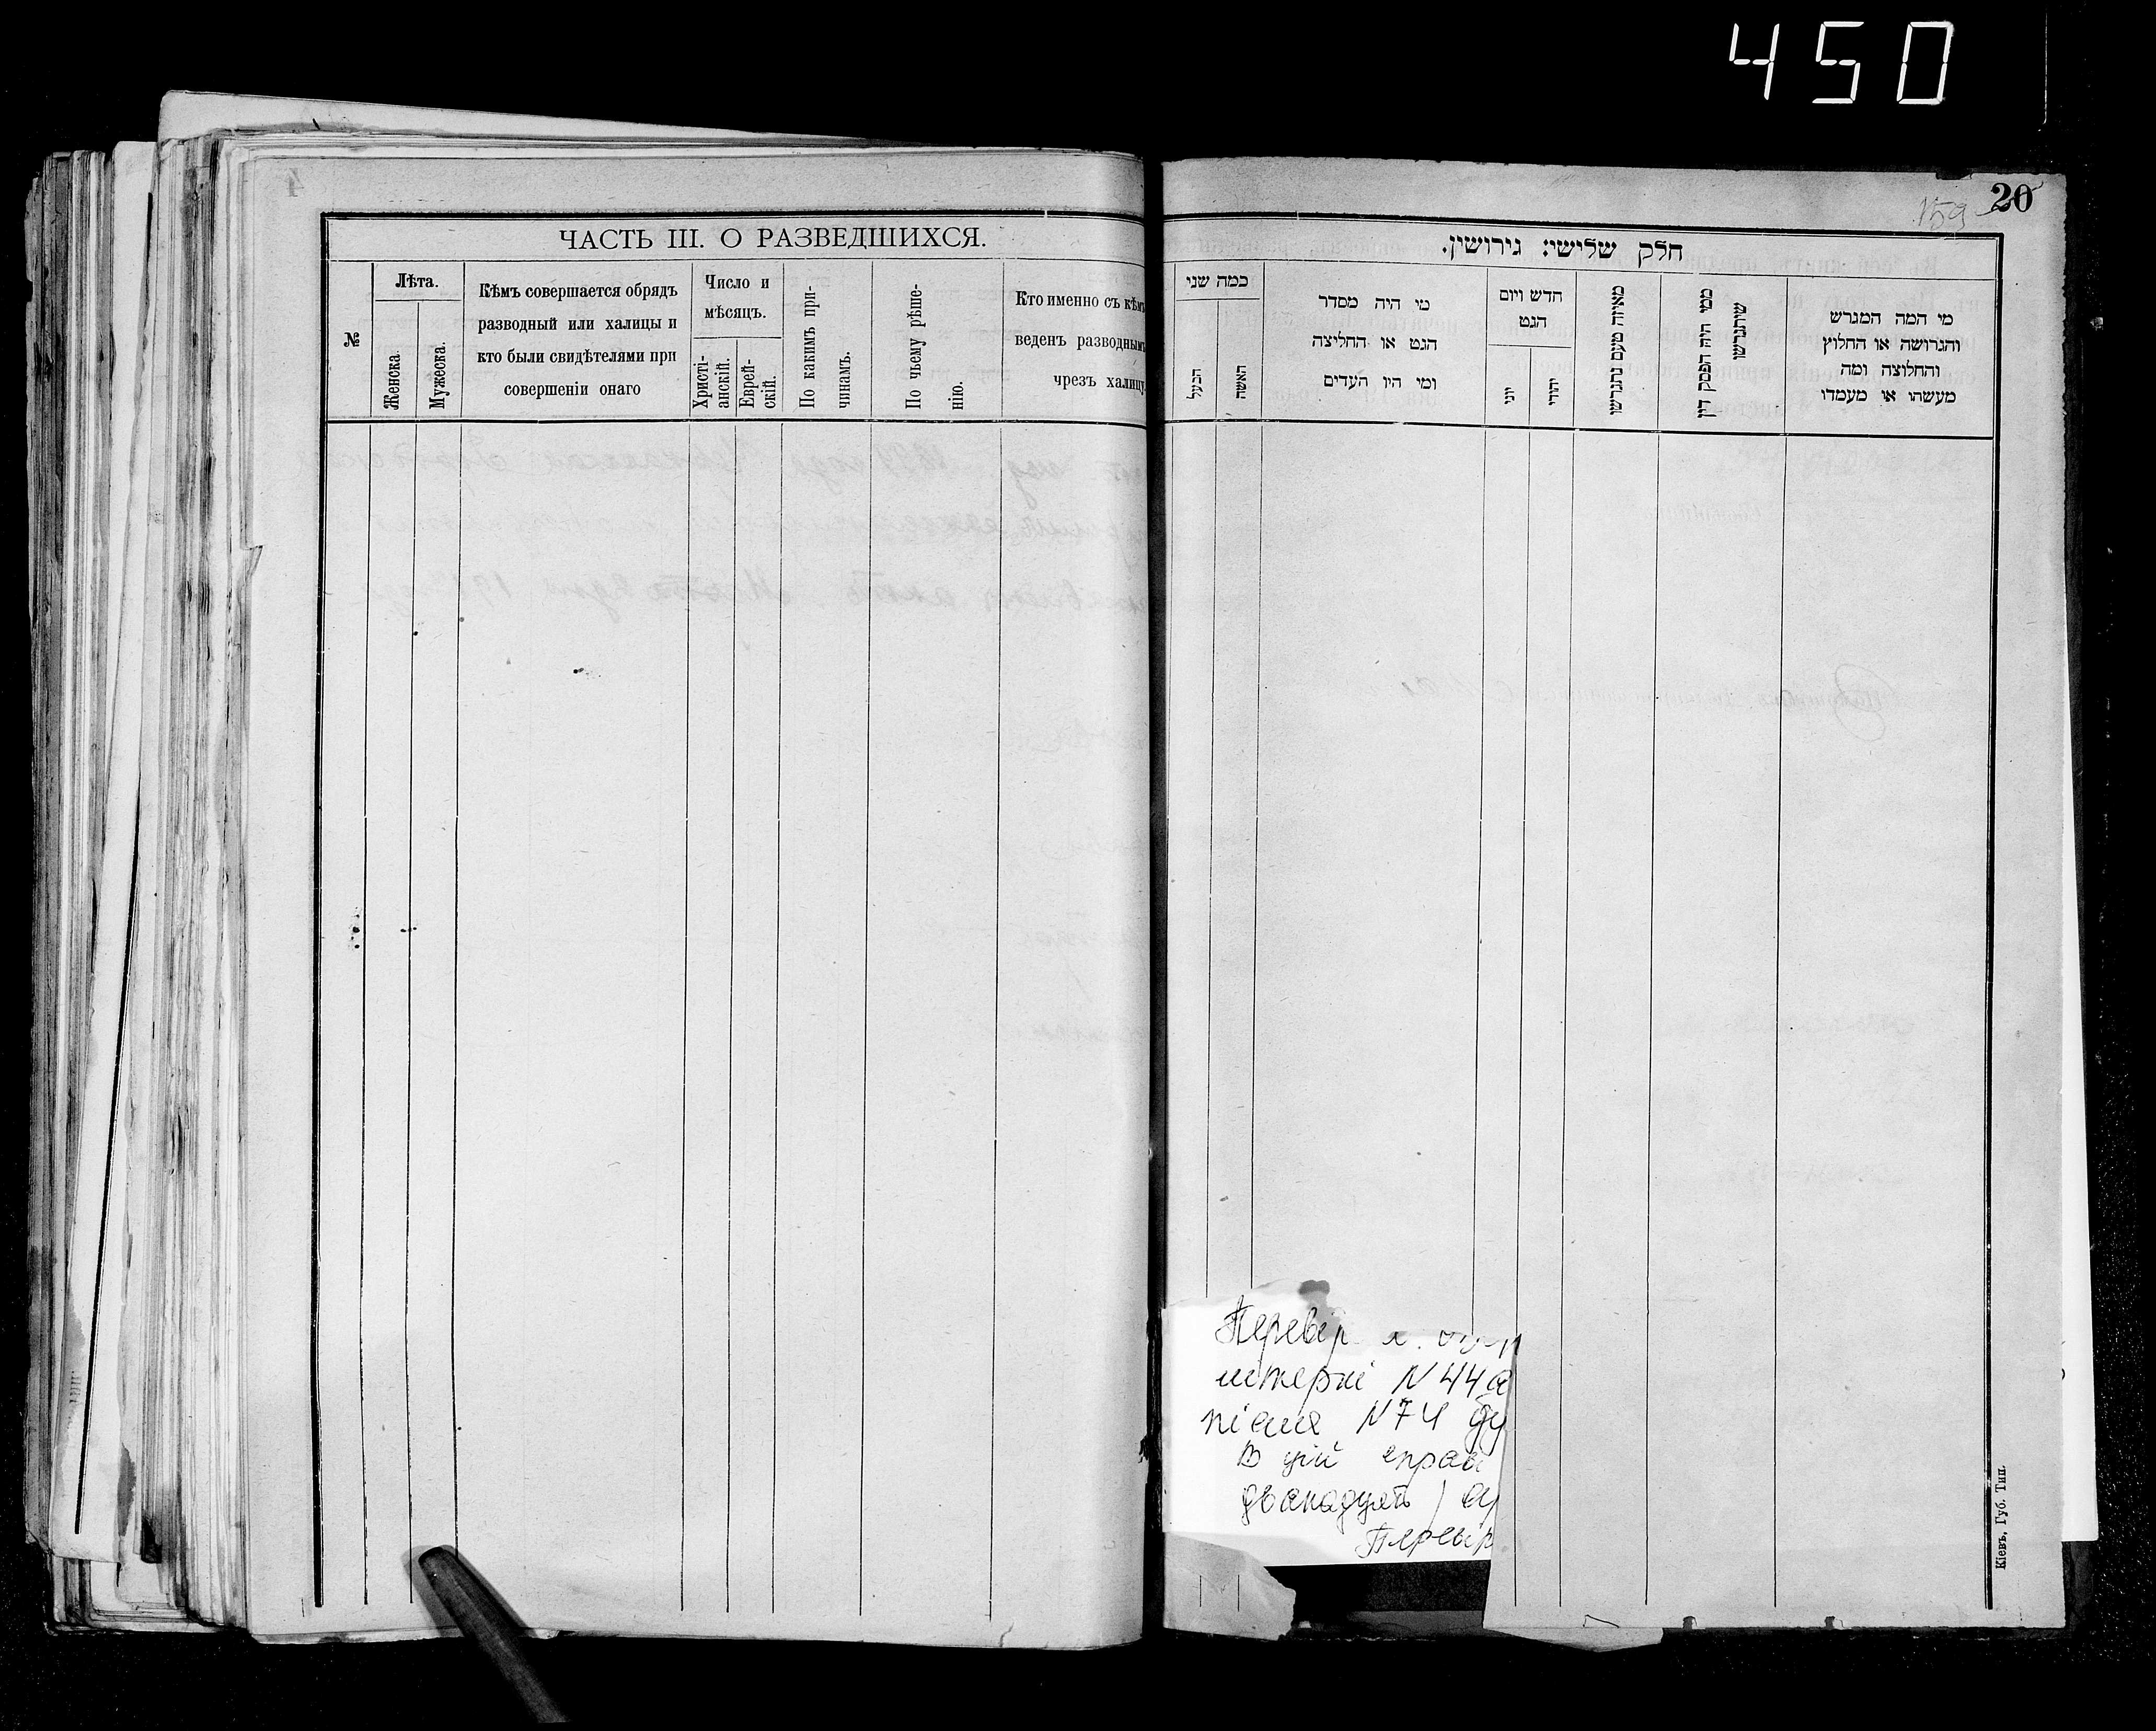 450
20
159
ЧАСТЬ III. О РАЗВЕДШИХСЯ.
№
Лѣта.
Женска.
Мужеска.
Кѣмъ совершается обрядъ
разводный или халицы и
кто были свидѣтелями при
совершеніи онаго
Число и
мѣсяцъ.
Христі-
анскій.
Еврей-
скій.
По какимъ при-
чинамъ.
По чьему рѣше-
нію.
Кто именно съ кѣмъ
веденъ разводнымъ
чрезъ халицу
חלק שלישי: גירושין.
כמה שני
הבעל
האשה
מי היה מסדר
הגט או החליצה
ומי היו העדים
חדש ויום
הגט
יוני
יהודי
מאיזה טעם נתגרשו
ממי היה הפסק דין
שיתגרשו
מי המה המגרש
והגרושה או החלוץ
והחלוצה ומה
מעשהו או מעמדו
Перевір
літерні N 44а
після N 74
В цій справ
дванадцять
Перевір
Кіевъ, Губ. Тип.